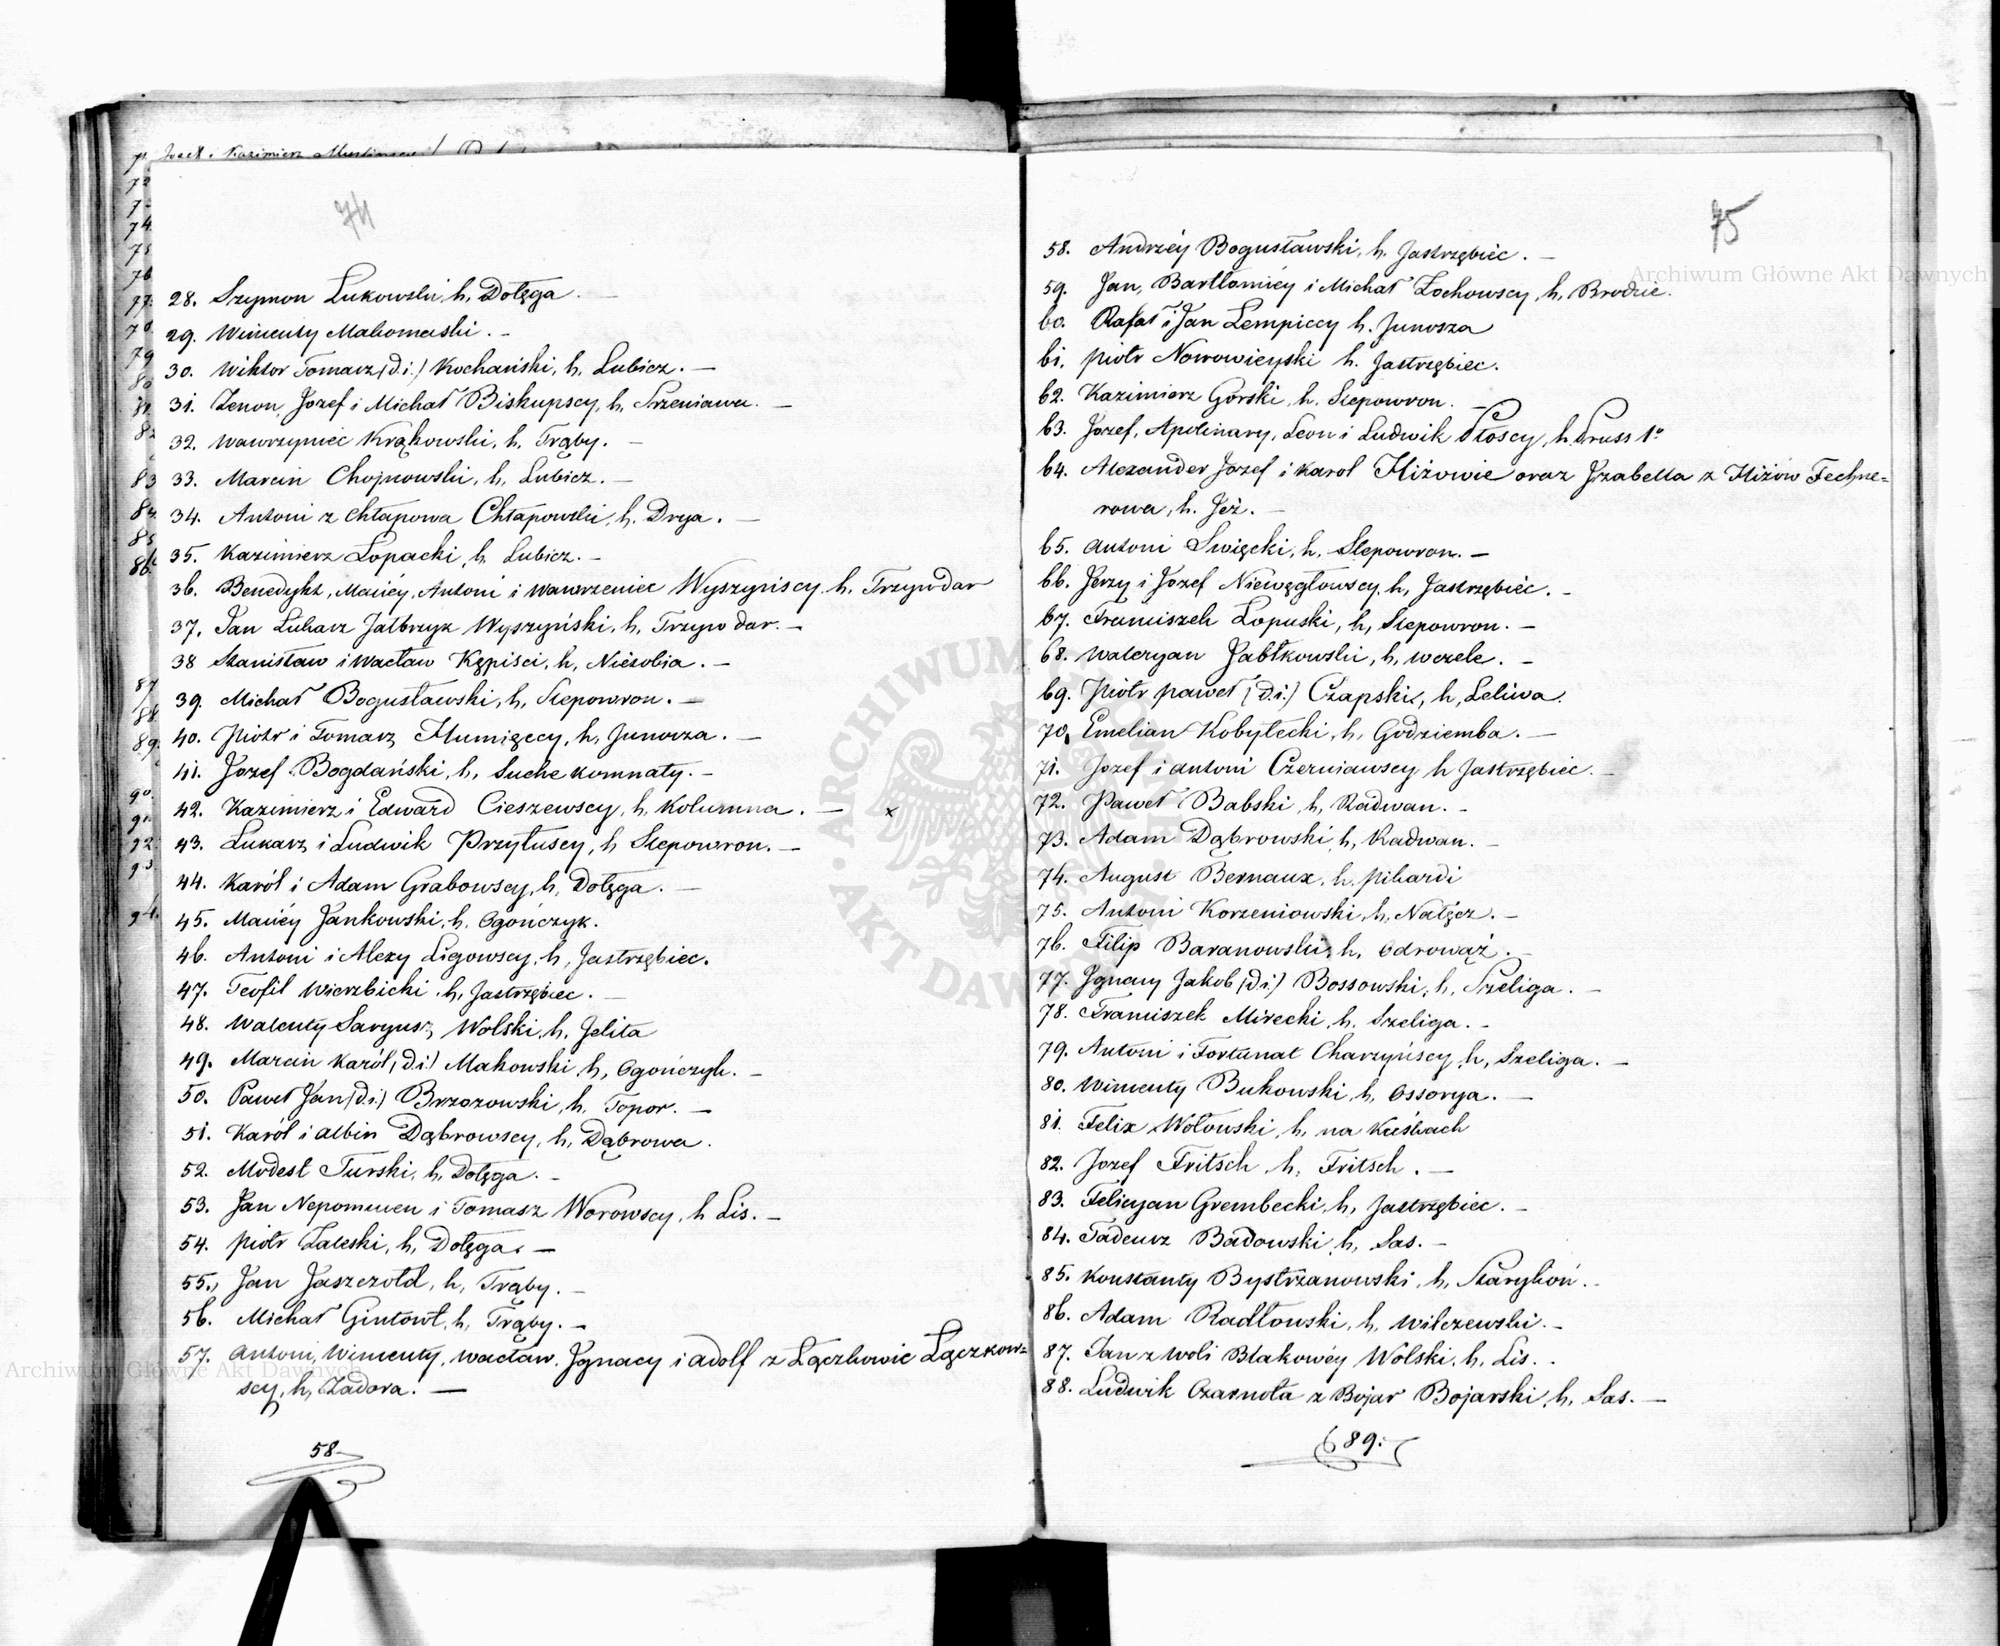 74
28. Szymon Łukowski, h, Dołęga.
29. Wincenty Mahomaski. -
30. Wiktor Tomasz (d.i.) Kochański, h. Lubicz. -
31. Zenon, Jozef i Michał Biskupscy, h. Srzeniawa. -
32. Wawrzyniec Krąkowski, h. Trąby. -
33. Marcin Chojnowski, h, Lubicz. -
34. Antoni z Chłapowa Chłapowski, h. Drya. -
35. Kazimierz Łopacki, h. Lubicz. -
36. Benedykt, Maciéy, Antoni i Wawrzeniec Wyszyńscy h. Trzywdar
37. Jan Łukasz Jałbrzyk Wyszyński, h, Trzywdar. -
38 Stanisław i Wacław Kępiści, h, Niesobia. -
39. Michał Bogusławski, h, Slepowron. -
40. Piotr i Tomasz Humięcy, h, Junosza. -
41. Jozef Bogdański, h, Suche komnaty. -
42. Kazimierz i Edward Cieszewscy, h, Kolumna. - x
43. Łukasz i Ludwik Przyłuscy, h Slepowron. -
44. Karól i Adam Grabowscy, h, Dołęga. -
45. Maciéy Jankowski, h. Ogończyk.
46. Antoni i Alexy Ligowscy, h, Jastrzębiec.
47. Teofil Wierzbicki, h, Jastrzębiec. -
48. Walenty Saryusz Wolski, h. Jelita
49. Marcin Karól (d.i.) Makowski, h, Ogończyk. -
50. Paweł Jan (d.i.) Brzozowski, h. Topor. -
51. Karól i Albin Dąbrowscy, h, Dąbrowa.
52. Modest Turski, h, Dołęga. -
53. Jan Nepomucen i Tomasz Worowscy, h Lis. -
54. Piotr Zaleski, h, Dołęga. -
55. Jan Jaszczołd, h, Trąby. -
56. Michał Gintowt, h, Trąby. -
57. Antoni, Wincenty, Wacław, Ignacy i Adolf z Łączkowic Łączkow=
scy, h, Zadora. -
58
75
58. Andrzéy Bogusławski, h. Jastrzębiec. -
59. Jan, Bartłomiéy i Michał Żochowscy, h, Brodzic.
60. Rafał i Jan Łempiccy h. Junosza
61. Piotr Nowowieyski h. Jastrzębiec.
62. Kazimierz Górski, h, Slepowron. -
63. Jozef, Apolinary, Leon i Ludwik Płoscy, h. Pruss 1o
64. Alexander Jozef i Karol Hiżowie oraz Izabella z Hiżów Techne=
rowa, h. Jéż. -
65. Antoni Swięcki, h. Slepowron. -
66. Jerzy i Jozef Niewęgłowscy, h, Jastrzębiéc. -
67. Franciszek Łopuski, h, Slepowron. -
68. Waleryan Jabłkowski, h, Wczele. -
69. Piotr Paweł (d.i.) Czapski, h, Leliwa.
70. Emelian Kobyłecki, h, Godziemba. -
71. Jozef i Antoni Czerniawscy h Jastrzębiec. -
72. Paweł Babski h, Radwan. -
73. Adam Dąbrowski, h, Radwan. -
74. August Bernaux, h. Pikardi
75. Antoni Korzeniowski, h, Nałęcz. -
76. Filip Baranowski, h, Odrowąż. -
77. Ignacy Jakób (d.i.) Bossowski, h, Szeliga. -
78. Franciszek Mirecki, h. Szeliga. -
79. Antoni i Fortunat Charzyńscy, h, Szeliga. -
80. Wincenty Bukowski, h, Ossorya. -
81. Felix Wołowski, h, na Kaskach
82. Jozef Fritsch, h, Fritsch. -
83. Felicyan Grembecki, h, Jastrzębiec. -
84. Tadeusz Badowski, h, Sas. -
85. Konstanty Bystrzanowski, h, Starykoń. -
86. Adam Radłowski, h, Wilczewski. -
87. Jan z Woli Blakowéy Wolski, h, Lis. -
88. Ludwik Czarnota z Bojar Bojarski, h, Sas. -
89.
Archiwum Główne Akt Dawnych
Archiwum Główne Akt Dawnych